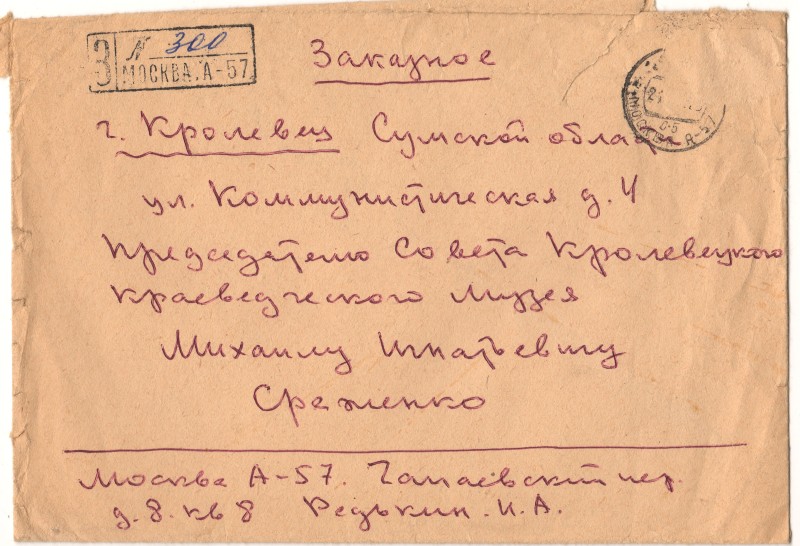 З № 300
МОСКВА, А-57
Заказное
МОСКВА А-57
г. Кролевец Сумской облас
ул. Коммунистическая д. 4
Председателю Совета Кролевецкого
краеведческого музея
Михаилу Игнатьевичу
Москва А-57. Чапаевский пер.
д. 8. кв 8 Редькин. И. А.